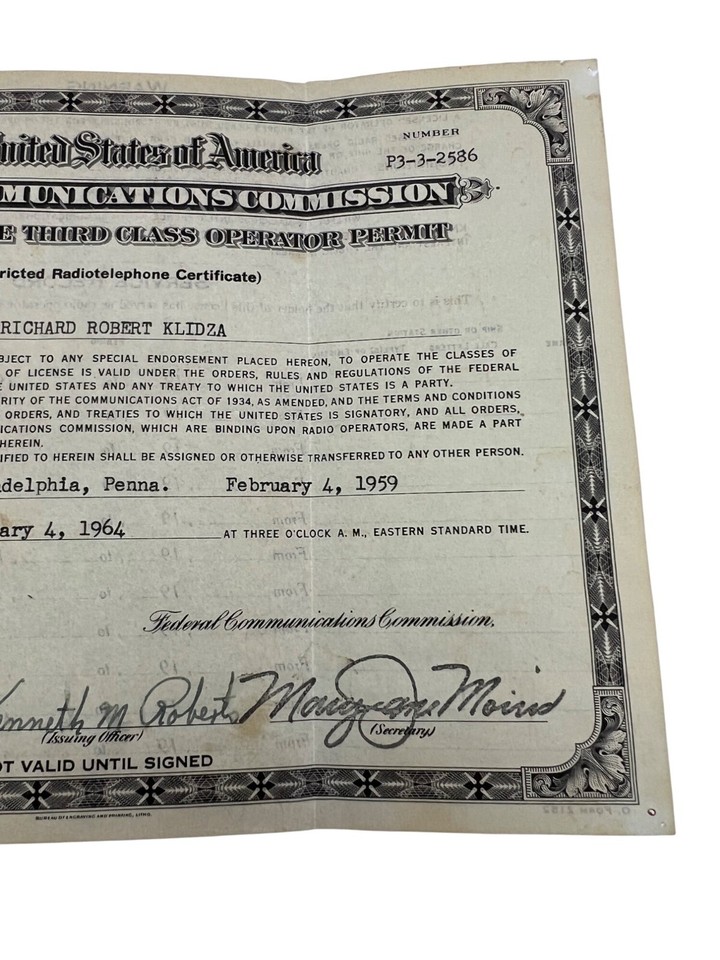 United States of America
NUMBER
P3-3-2586
MUNICATIONS COMMISSION
E THIRD CLASS OPERATOR PERMIT
ricted Radiotelephone Certificate)
RICHARD ROBERT KLIDZA
BJECT TO ANY SPECIAL ENDORSEMENT PLACED HEREON, TO OPERATE THE CLASSES OF
OF LICENSE IS VALID UNDER THE ORDERS, RULES AND REGULATIONS OF THE FEDERAL
E UNITED STATES AND ANY TREATY TO WHICH THE UNITED STATES IS A PARTY.
RITY OF THE COMMUNICATIONS ACT OF 1934, AS AMENDED, AND THE TERMS AND CONDITIONS
ORDERS, AND TREATIES TO WHICH THE UNITED STATES IS SIGNATORY, AND ALL ORDERS,
ICATIONS COMMISSION, WHICH ARE BINDING UPON RADIO OPERATORS, ARE MADE A PART
HEREIN.
IFIED TO HEREIN SHALL BE ASSIGNED OR OTHERWISE TRANSFERRED TO ANY OTHER PERSON.
adelphia, Penna. February 4, 1959
ary 4, 1964 AT THREE O'CLOCK A. M., EASTERN STANDARD TIME.
Federal Communications Commission.
enneth M Roberts Mary Jane Morris
(Issuing Officer) (Secretary)
OT VALID UNTIL SIGNED
BUREAU OF ENGRAVING AND PRINTING, LITHO.